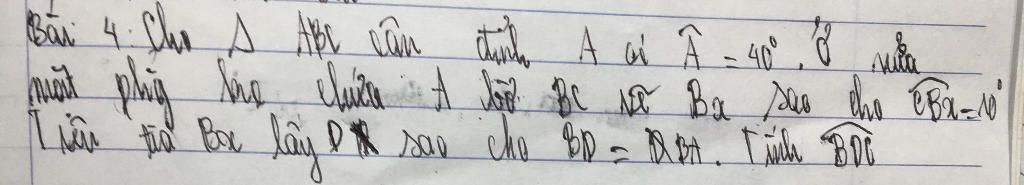 Bài 4: Cho Δ ABC cân đỉnh A có Â = 40°. Ở nửa
mặt phẳng ko chứa A bờ BC vẽ Bx sao cho CBx = 10°
Trên tia Bx lấy D sao cho BD = BA. Tính BDC